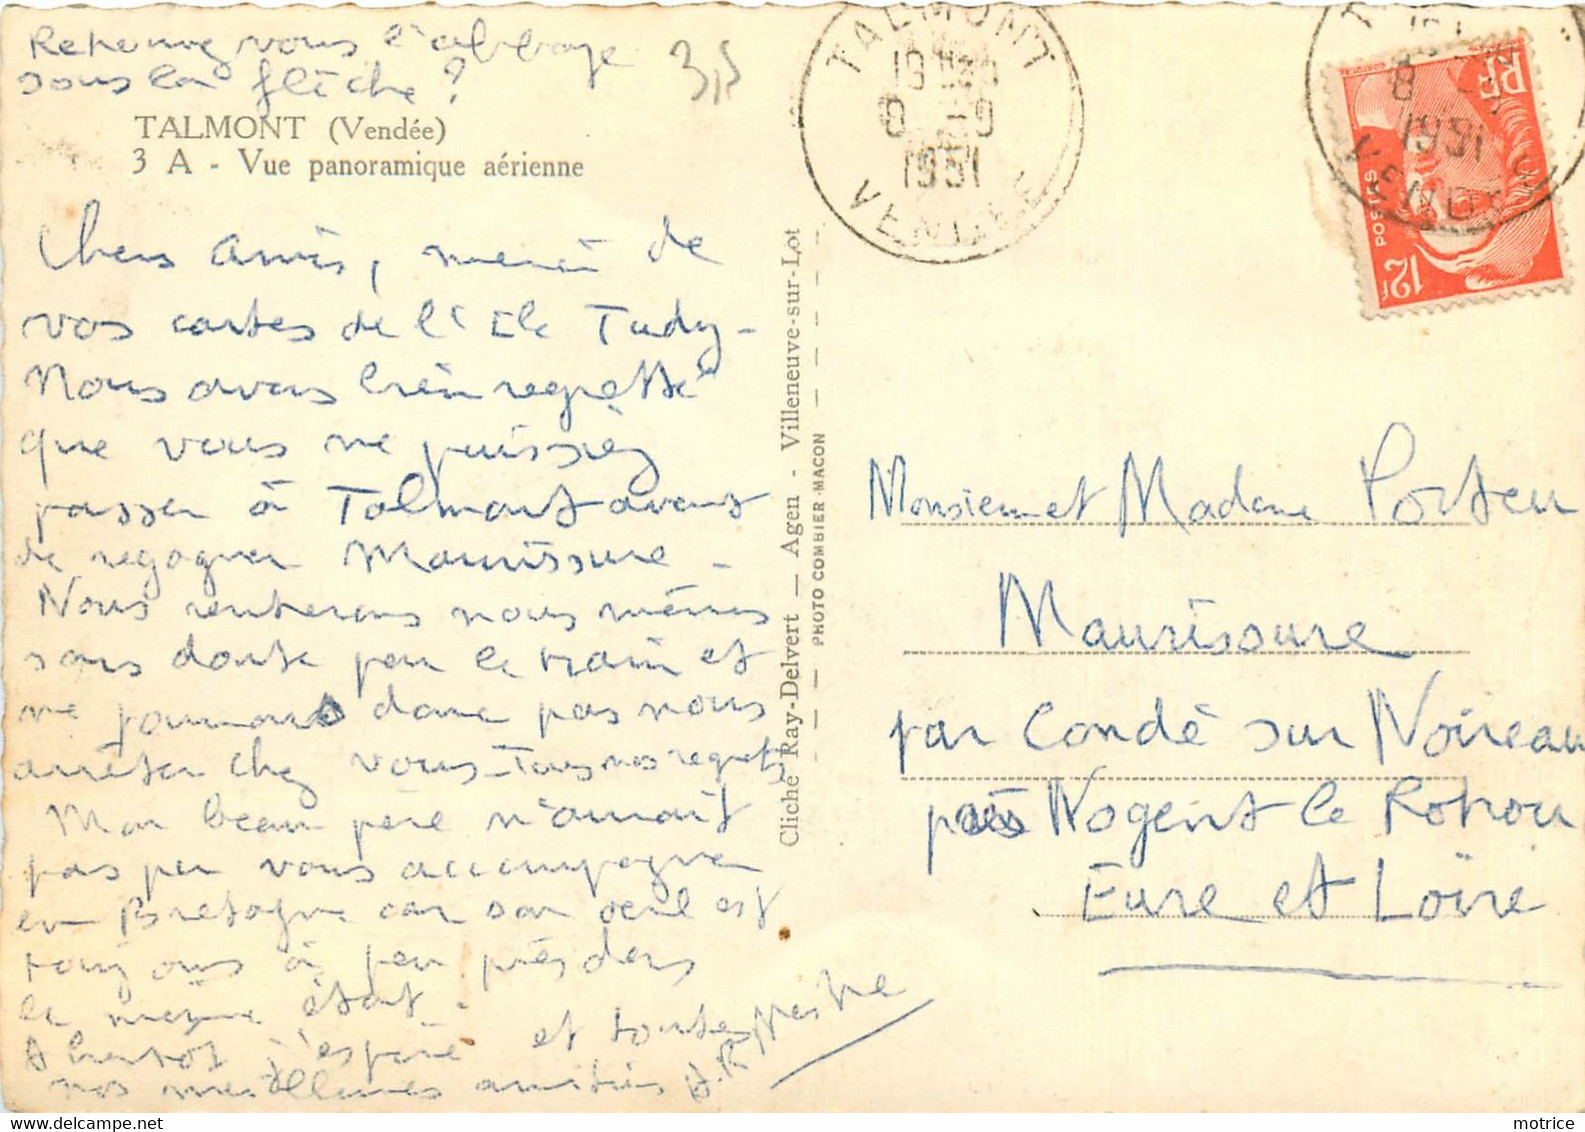 Retrouvez vous l'abbaye
sous la flèche ?
35
TALMONT (Vendée)
3 A - Vue panoramique aérienne
Chers amis, merci de
vos cartes de l'Ile Tudy -
Nous avons bien regretté
que vous ne puissiez
passer à Talmont avant
de regagner Maurissure -
Nous rentrerons nous mêmes
sans doute par le train et
ne pourrons donc pas nous
arrêter chez vous - Tous nos regrets
Mon beau père n'aurait
pas pu vous accompagner
en Bretagne car son oeil est
toujours à peu près dans
le même état -
A bientôt j'espère et toutes
nos meilleures amitiés
Cliché Ray-Delvert — Agen - Villeneuve-sur-Lot
PHOTO COMBIER MACON
TALMONT
1951
VENDEE
TALMONT
1951
VENDEE
RF
POSTES
12f
Monsieur et Madame Porteu
Maurissure
par Condé sur Noireau
près Nogent le Rotrou
Eure et Loire
motrice